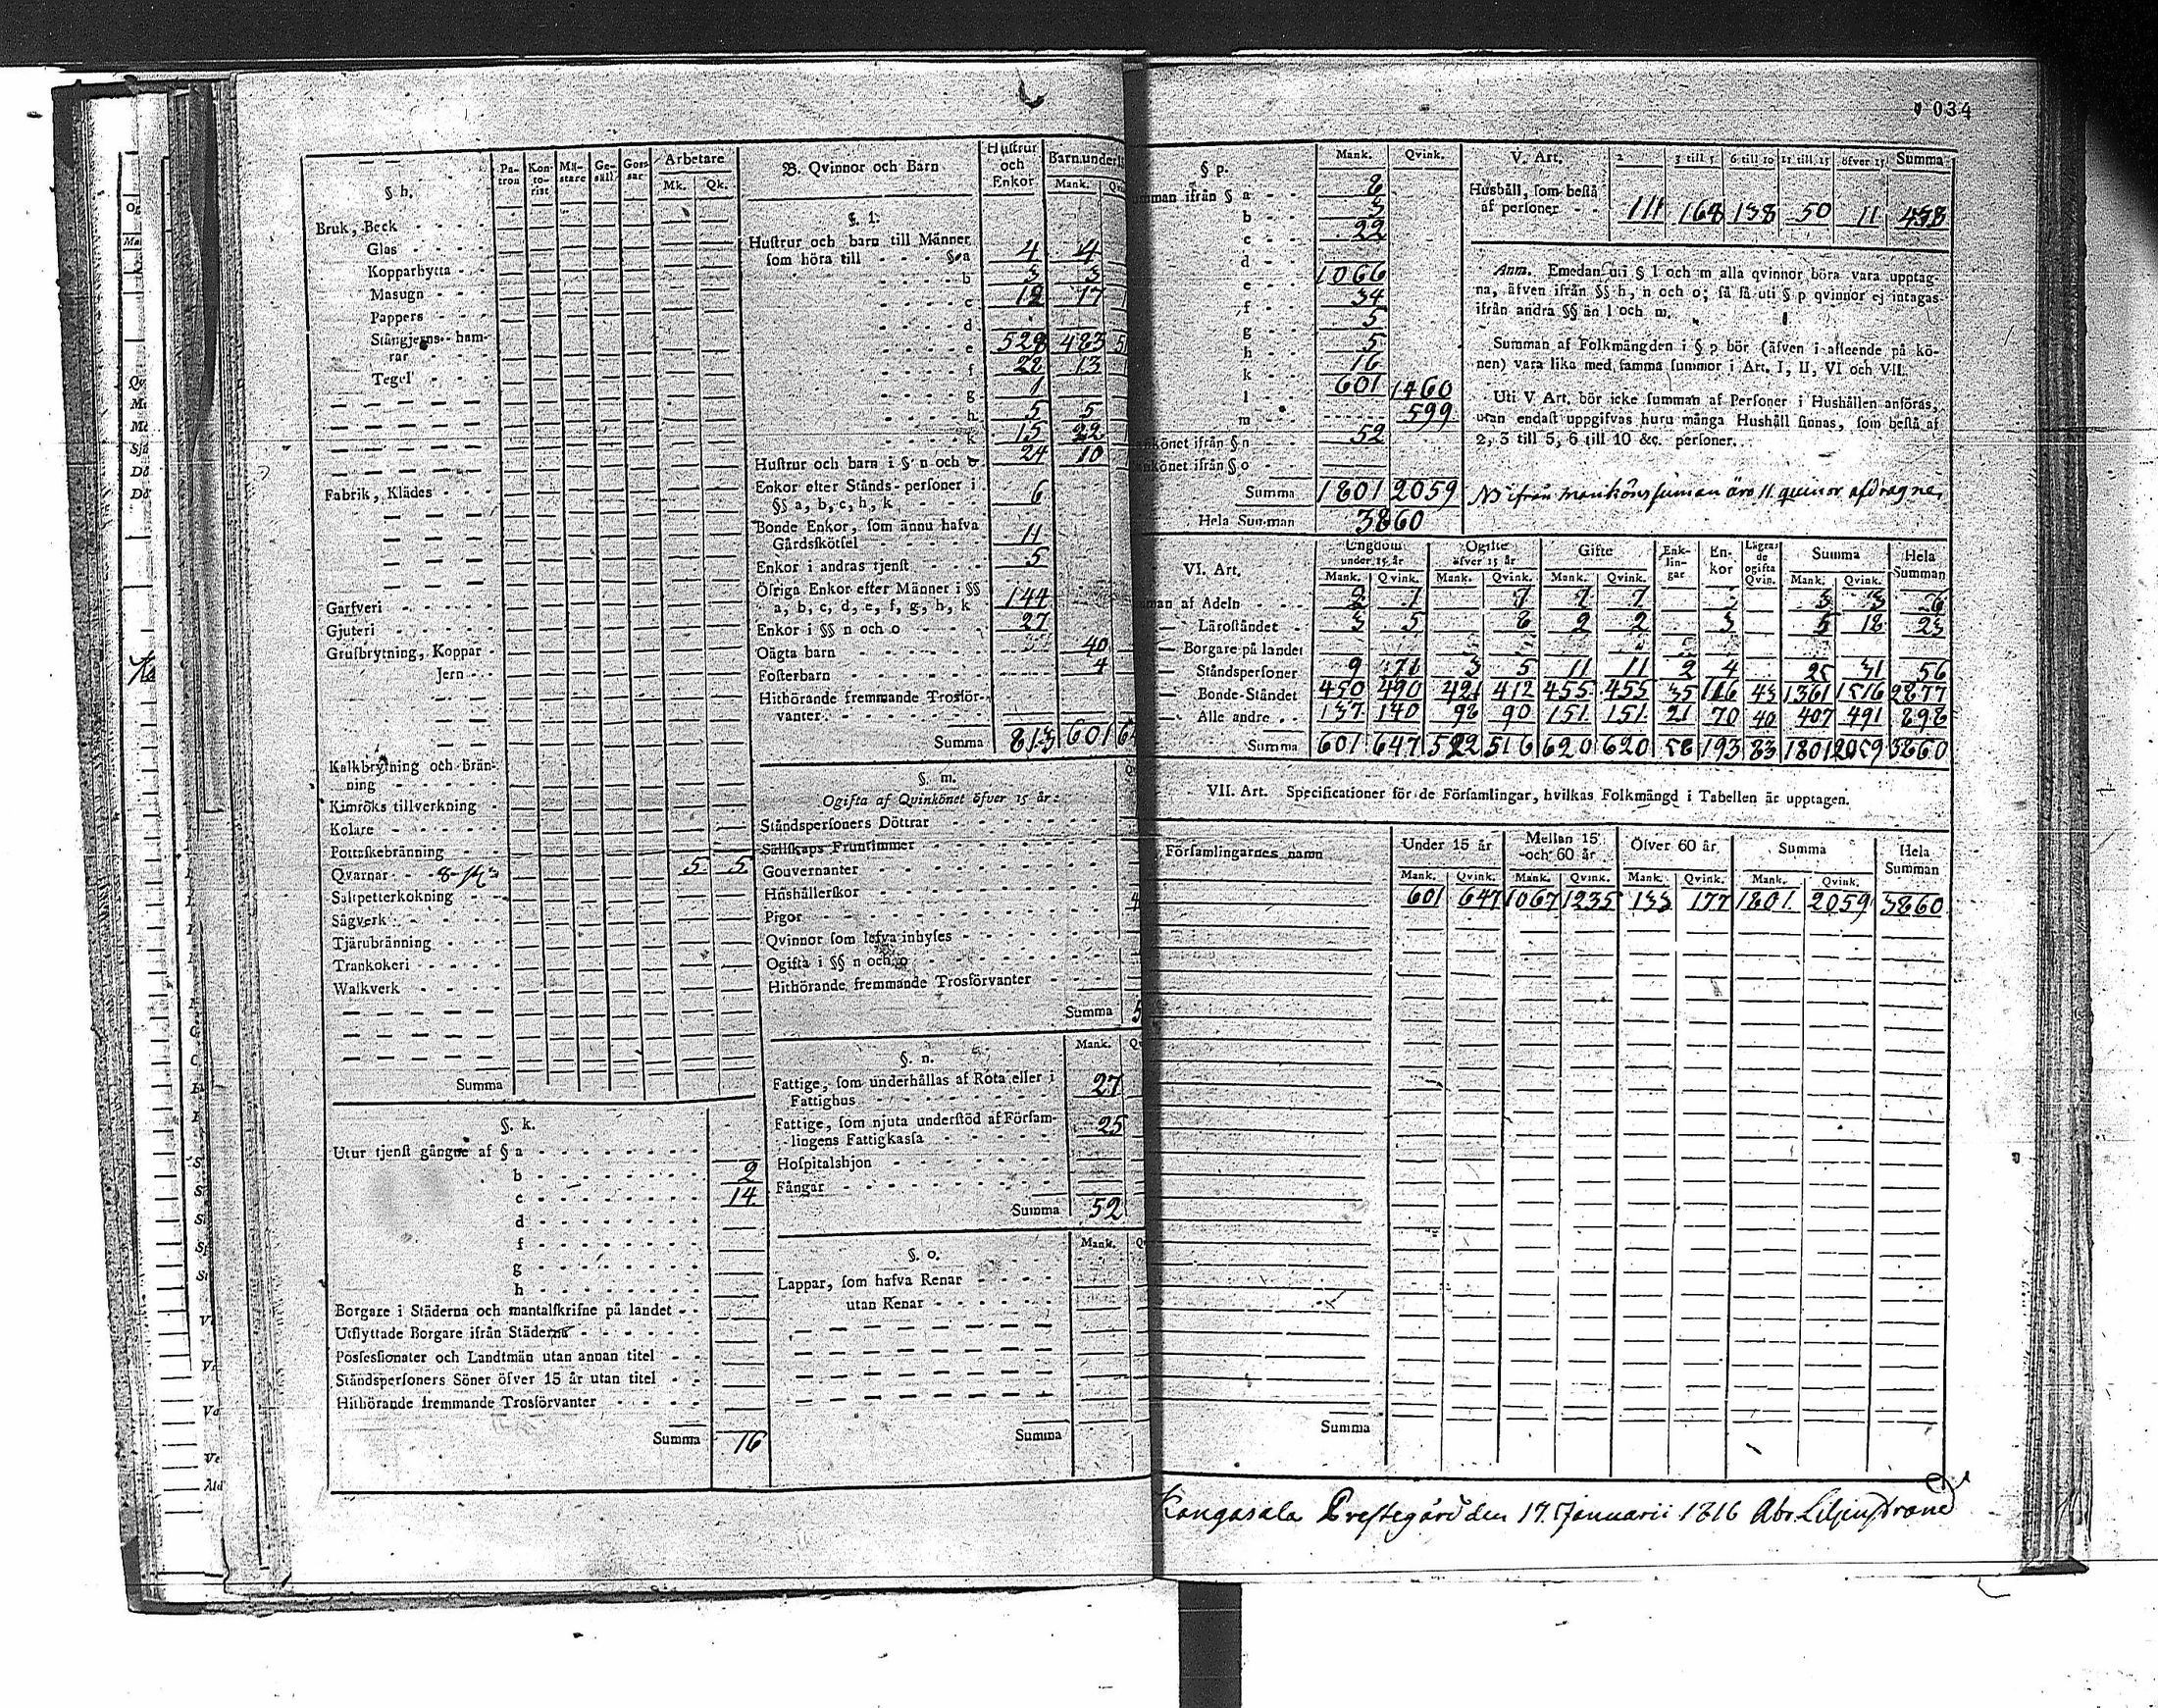 034
§ h.
Patron
Kontorist
Mästare
Gesäll
Gossar
Arbetare
Mk. Qk.
Bruk, Beck
Glas
Kopparhytta
Masugn
Pappers
Stångjerns-hamrar
Tegel
Fabrik, Klädes
Garfveri
Gjuteri
Grufbrytning, Koppar
Jern
Kalkbrytning och Bränning
Kimröks tillverkning
Kolare
Pottaskebränning
Qvarnar 5 5
Saltpetterkokning
Sågverk
Tjärubränning
Trankokeri
Walkverk
Summa
§. k.
Utur tjenst gångne af § a
b 2
c 14
d
f
g
h
Borgare i Städerna och mantalskrifne på landet
Utflyttade Borgare ifrån Städerna
Possessionater och Landtmän utan annan titel
Ståndspersoners Söner öfver 15 år utan titel
Hithörande fremmande Trosförvanter
Summa 16
B. Qvinnor och Barn
Hustrur och Enkor
Barn under
Mank.
§. l.
Hustrur och barn till Männer
som höra till § a 4 4
b 3 3
c 12 17
d
e 528 483
f 28 13
g 1
h 5 5
k 15 22
Hustrur och barn i § n och o 24 10
Enkor efter Stånds-personer i
§§ a, b, c, h, k 6
Bonde Enkor, som ännu hafva
Gårdskötsel 11
Enkor i andras tjenst 5
Öfriga Enkor efter Männer i §§
a, b, c, d, e, f, g, h, k 144
Enkor i §§ n och o 27
Oägta barn 40
Fosterbarn 4
Hithörande fremmande Trosförvanter
Summa 813 601
§. m.
Ogifta af Qvinkönet öfver 15 år:
Ståndspersoners Döttrar
Sällskaps Fruntimmer
Gouvernanter
Hushållerskor
Pigor
Qvinnor som lefva inhyses
Ogifta i §§ n och o
Hithörande fremmande Trosförvanter
Summa
§. n.
Mank.
Fattige, som underhållas af Rota eller i
Fattighus 27
Fattige, som njuta understöd af Församlingens
Fattigkassa 25
Hospitalshjon
Fångar
Summa 52
§. o.
Mank.
Lappar, som hafva Renar
utan Renar
Summa
§ p.
Mank. Qvink.
ifrån § a 8
b 3
c 22
d
e 1066
f 34
g 5
h 5
k 16
l 601 1460
m 599
ifrån § n 52
ifrån § o
Summa 1801 2059
Hela Summan 3860
V. Art.
2 3 till 5 6 till 10 11 till 15 öfver 15 Summa
Hushåll, som bestå
af personer 111 168 138 50 11 438
Anm. Emedan uti § l och m alla qvinnor böra vara upptagna,
äfven ifrån §§ h, n och o; så få uti § p qvinnor ej intagas
ifrån andra §§ än l och m.
Summan af Folkmängden i § p bör (äfven i afseende på könen)
vara lika med samma summor i Art. I, II, VI och VII.
Uti V Art. bör icke summan af Personer i Hushållen anföras,
utan endast uppgifvas huru många Hushåll finnas, som bestå af
2, 3 till 5, 6 till 10 &c. personer.
NB ifrån mankönssumman äro 11 quinor afdragne
VI. Art.
Ungdom under 15 år
Ogifte öfver 15 år
Gifte
Enklingar
Enkor
Lägrade ogifta Qvin.
Summa
Hela Summan
Mank. Qvink. Mank. Qvink. Mank. Qvink. Mank. Qvink.
af Adeln 3 3 6
Läroståndet 3 5 8 2 2 3 5 18 23
Borgare på landet
Ståndspersoner 9 11 3 5 11 11 2 4 25 31 56
Bonde-Ståndet 450 490 421 412 455 455 35 116 43 1361 1516 2877
Alle andre 137 140 98 90 151 151 21 70 40 407 491 898
Summa 601 647 522 516 620 620 58 193 83 1801 2059 3860
VII. Art. Specificationer för de Församlingar, hvilkas Folkmängd i Tabellen är upptagen.
Församlingarnes namn
Under 15 år
Mellan 15 och 60 år
Öfver 60 år
Summa
Hela Summan
Mank. Qvink. Mank. Qvink. Mank. Qvink. Mank. Qvink.
601 647 1067 1235 133 177 1801 2059 3860
Summa
Kangasala Prestegård den 17 Januarii 1816 Abr. Liljenstrand